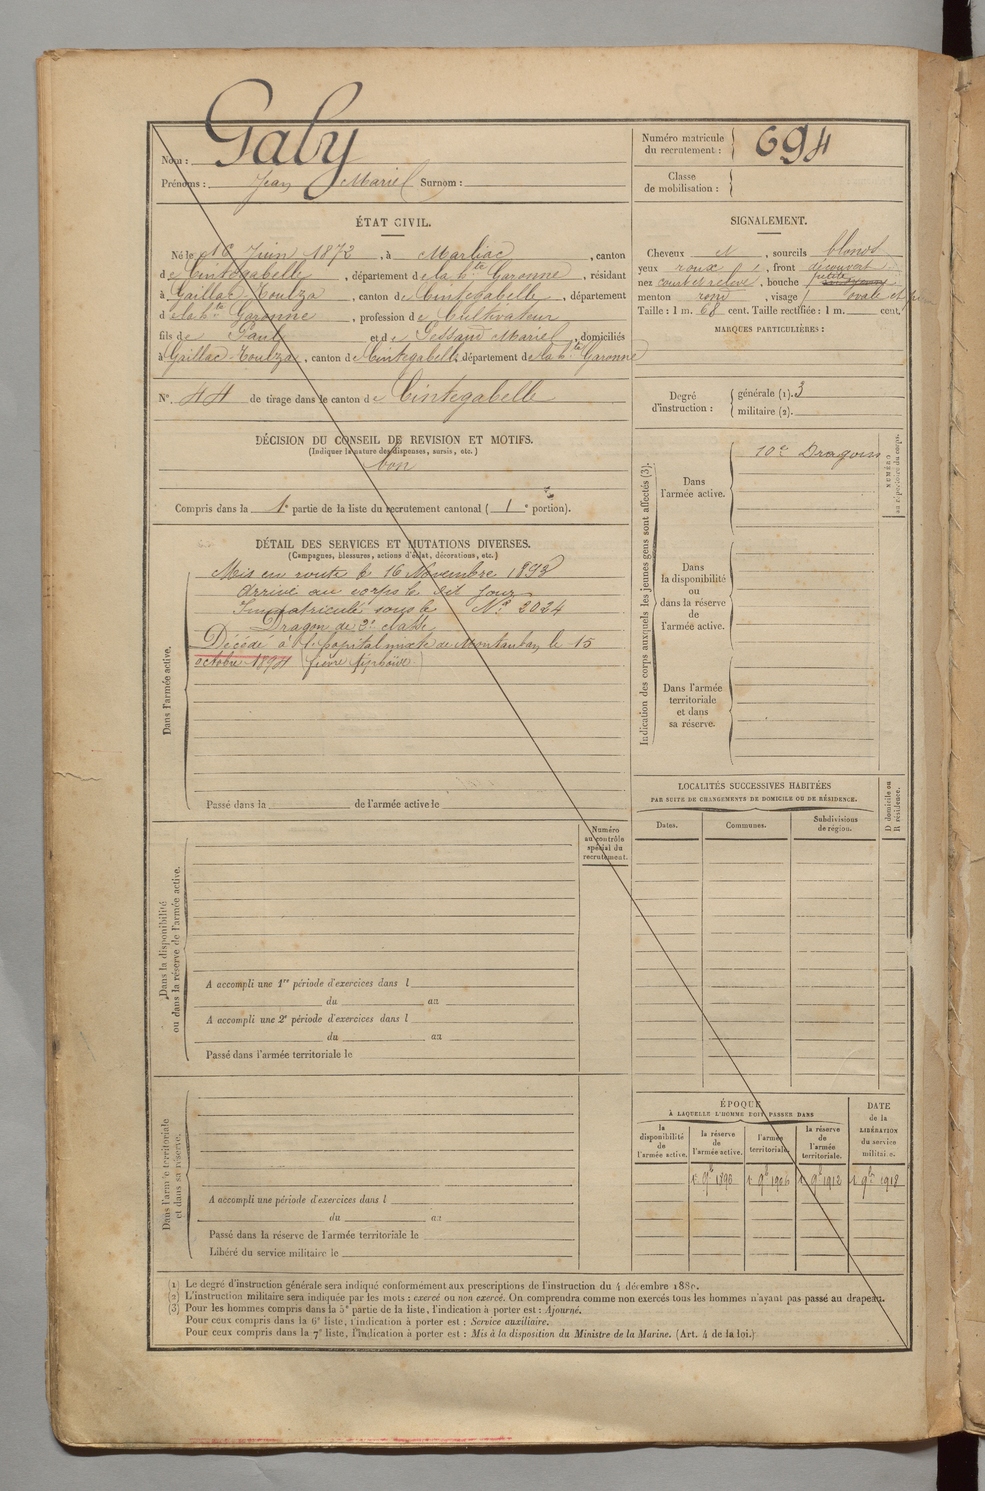 Nom : Gaby
Prénoms : Jean Mariel Surnom :
Numéro matricule du recrutement : 694
Classe de mobilisation :
ÉTAT CIVIL.
Né le 16 Juin 1872, à Marliac, canton
de Cintegabelle, département de la hte Garonne, résidant
à Gaillac-Toulza, canton de Cintegabelle, département
d la hte Garonne, profession de Cultivateur
fils de Paul et de Mariel, domiciliés
à Gaillac-Toulza, canton de Cintegabelle, département de la hte Garonne
N° 44 de tirage dans le canton de Cintegabelle
SIGNALEMENT.
Cheveux et, sourcils blonds
yeux roux, front découvert
nez court et relevé, bouche petite
menton rond, visage ovale et
Taille : 1 m. 68 cent. Taille rectifiée : 1 m. cent.
MARQUES PARTICULIÈRES :
Degré d'instruction : générale (1). 3
militaire (2).
DÉCISION DU CONSEIL DE REVISION ET MOTIFS.
(Indiquer la nature des dispenses, sursis, etc.)
bon
Compris dans la 1e partie de la liste du recrutement cantonal ( 1e portion).
DÉTAIL DES SERVICES ET MUTATIONS DIVERSES.
(Campagnes, blessures, actions d'éclat, décorations, etc.)
Dans l'armée active.
Mis en route le 16 Novembre 1893
Arrivé au corps le dit jour
Immatriculé sous le N° 2024
Dragon de 2e classe
Décédé à l'hopital mixte de Montauban le 15
octobre 1894 (fièvre typhoïde)
Passé dans la de l'armée active le
Indication des corps auxquels les jeunes gens sont affectés (3).
NUMÉRO
au répertoire du corps.
Dans l'armée active.
10e Dragons
Dans la disponibilité ou dans la réserve de l'armée active.
Dans l'armée territoriale et dans sa réserve.
LOCALITÉS SUCCESSIVES HABITÉES
PAR SUITE DE CHANGEMENTS DE DOMICILE OU DE RÉSIDENCE.
D domicile ou R résidence.
Dates.
Communes.
Subdivisions de région.
Dans la disponibilité ou dans la réserve de l'armée active.
Numéro au contrôle spécial du recrutement.
A accompli une 1re période d'exercices dans l
du au
A accompli une 2e période d'exercices dans l
du au
Passé dans l'armée territoriale le
Dans l'armée territoriale et dans sa réserve.
A accompli une période d'exercices dans l
du au
Passé dans la réserve de l'armée territoriale le
Libéré du service militaire le
ÉPOQUE
À LAQUELLE L'HOMME DOIT PASSER DANS
la disponibilité de l'armée active.
la réserve de l'armée active.
l'armée territoriale.
la réserve de l'armée territoriale.
DATE de la LIBÉRATION du service militaire.
1 9bre 1896
1 9bre 1906
1 9bre 1912
1 9bre 1918
(1) Le degré d'instruction générale sera indiqué conformément aux prescriptions de l'instruction du 4 décembre 1889.
(2) L'instruction militaire sera indiquée par les mots : exercé ou non exercé. On comprendra comme non exercés tous les hommes n'ayant pas passé au drapeau.
(3) Pour les hommes compris dans la 5e partie de la liste, l'indication à porter est : Ajourné.
Pour ceux compris dans la 6e liste, l'indication à porter est : Service auxiliaire.
Pour ceux compris dans la 7e liste, l'indication à porter est : Mis à la disposition du Ministre de la Marine. (Art. 4 de la loi.)